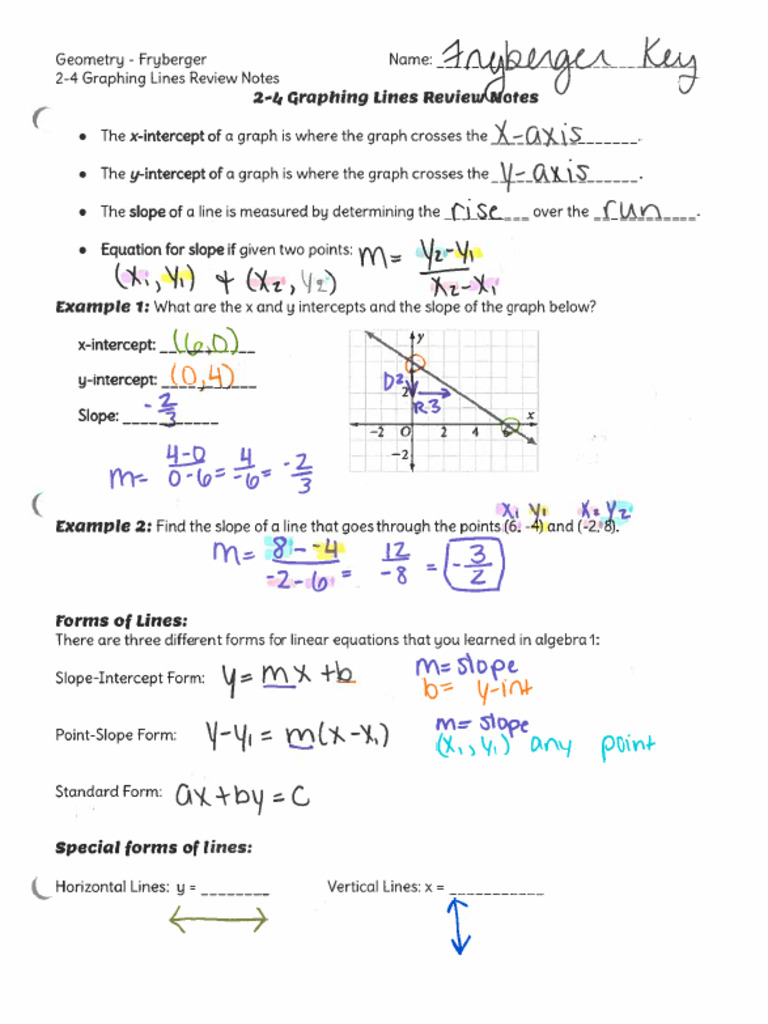 Geometry - Fryberger Name: Fryberger Key
2-4 Graphing Lines Review Notes
2-4 Graphing Lines Review Notes
• The x-intercept of a graph is where the graph crosses the x-axis.
• The y-intercept of a graph is where the graph crosses the y-axis.
• The slope of a line is measured by determining the rise over the run.
• Equation for slope if given two points: m = (y₂-y₁)/(x₂-x₁)
(x₁, y₁) & (x₂, y₂)
Example 1: What are the x and y intercepts and the slope of the graph below?
x-intercept: (6,0)
y-intercept: (0,4)
Slope: -2/3
y
D2
2
R3
x
-2 O 2 4
-2
m = (4-0)/(0-6) = 4/-6 = -2/3
x₁ y₁ x₂ y₂
Example 2: Find the slope of a line that goes through the points (6, -4) and (-2, 8).
m = (8 - -4)/(-2 - 6) = 12/-8 = -3/2
Forms of Lines:
There are three different forms for linear equations that you learned in algebra 1:
Slope-Intercept Form: y = mx + b m = slope
b = y-int
Point-Slope Form: y-y₁ = m(x-x₁) m = slope
(x₁, y₁) any point
Standard Form: ax + by = c
Special forms of lines:
Horizontal Lines: y = ________ Vertical Lines: x = ___________